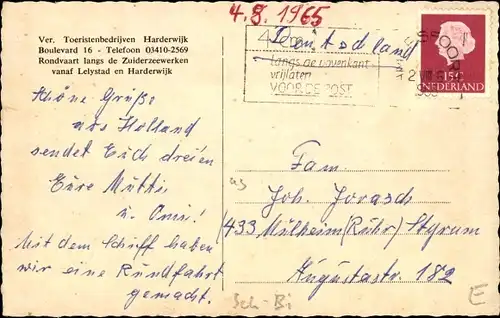 4.8.1965
Ver. Toeristenbedrijven Harderwijk
Boulevard 16 - Telefoon 03410-2569
Rondvaart langs de Zuiderzeewerken
vanaf Lelystad en Harderwijk
Deutschland
langs de bovenkant
vrijlaten
VOOR DE POST
15 c
NEDERLAND
Schöne Grüße
aus Holland
sendet Euch dreien
Eure Mutti
u. Omi!
Mit dem Schiff haben
wir eine Rundfahrt
gemacht.
Fam.
Joh. Jorasch
433 Mülheim (Ruhr) Styrum
Augustastr. 182
Sch-Bi
E